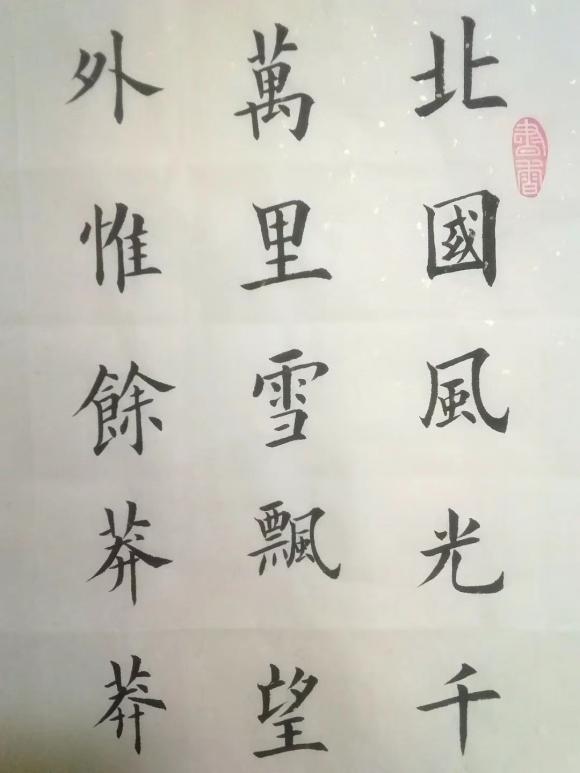 北國風光千
萬里雪飄望
外惟餘莽莽
書香